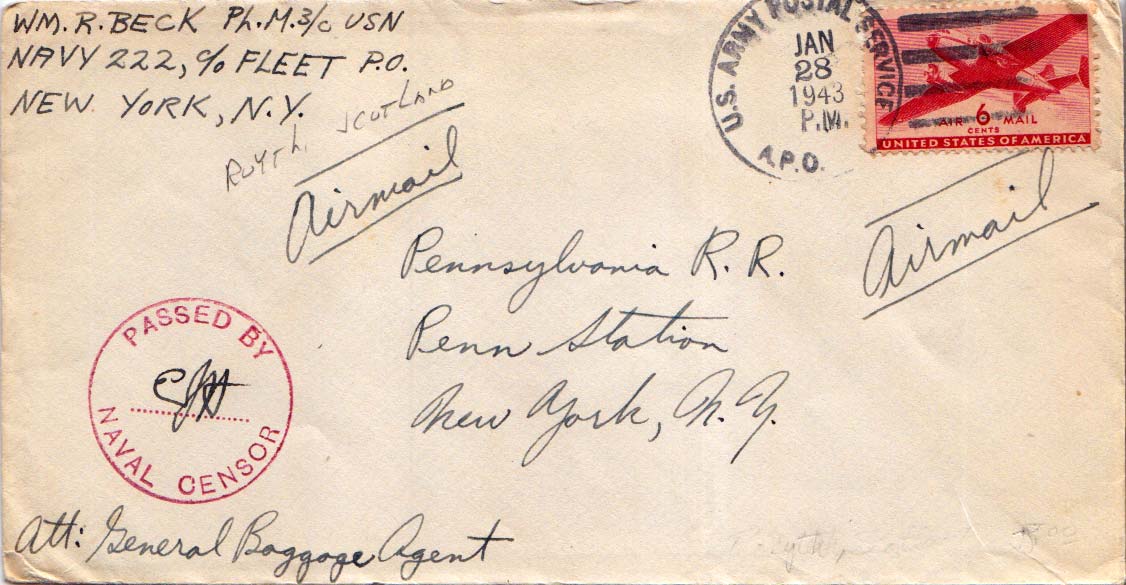 WM. R. BECK Ph.M.3/c USN
NAVY 222, c/o FLEET P.O.
NEW YORK, N.Y.
ROYTH, SCOTLAND
Airmail
U.S. ARMY POSTAL SERVICE
JAN
28
1943
P.M.
A.P.O.
AIR 6 MAIL
CENTS
UNITED STATES OF AMERICA
Airmail
Pennsylvania R. R.
Penn Station
New York, N. Y.
PASSED BY
NAVAL CENSOR
Att: General Baggage Agent